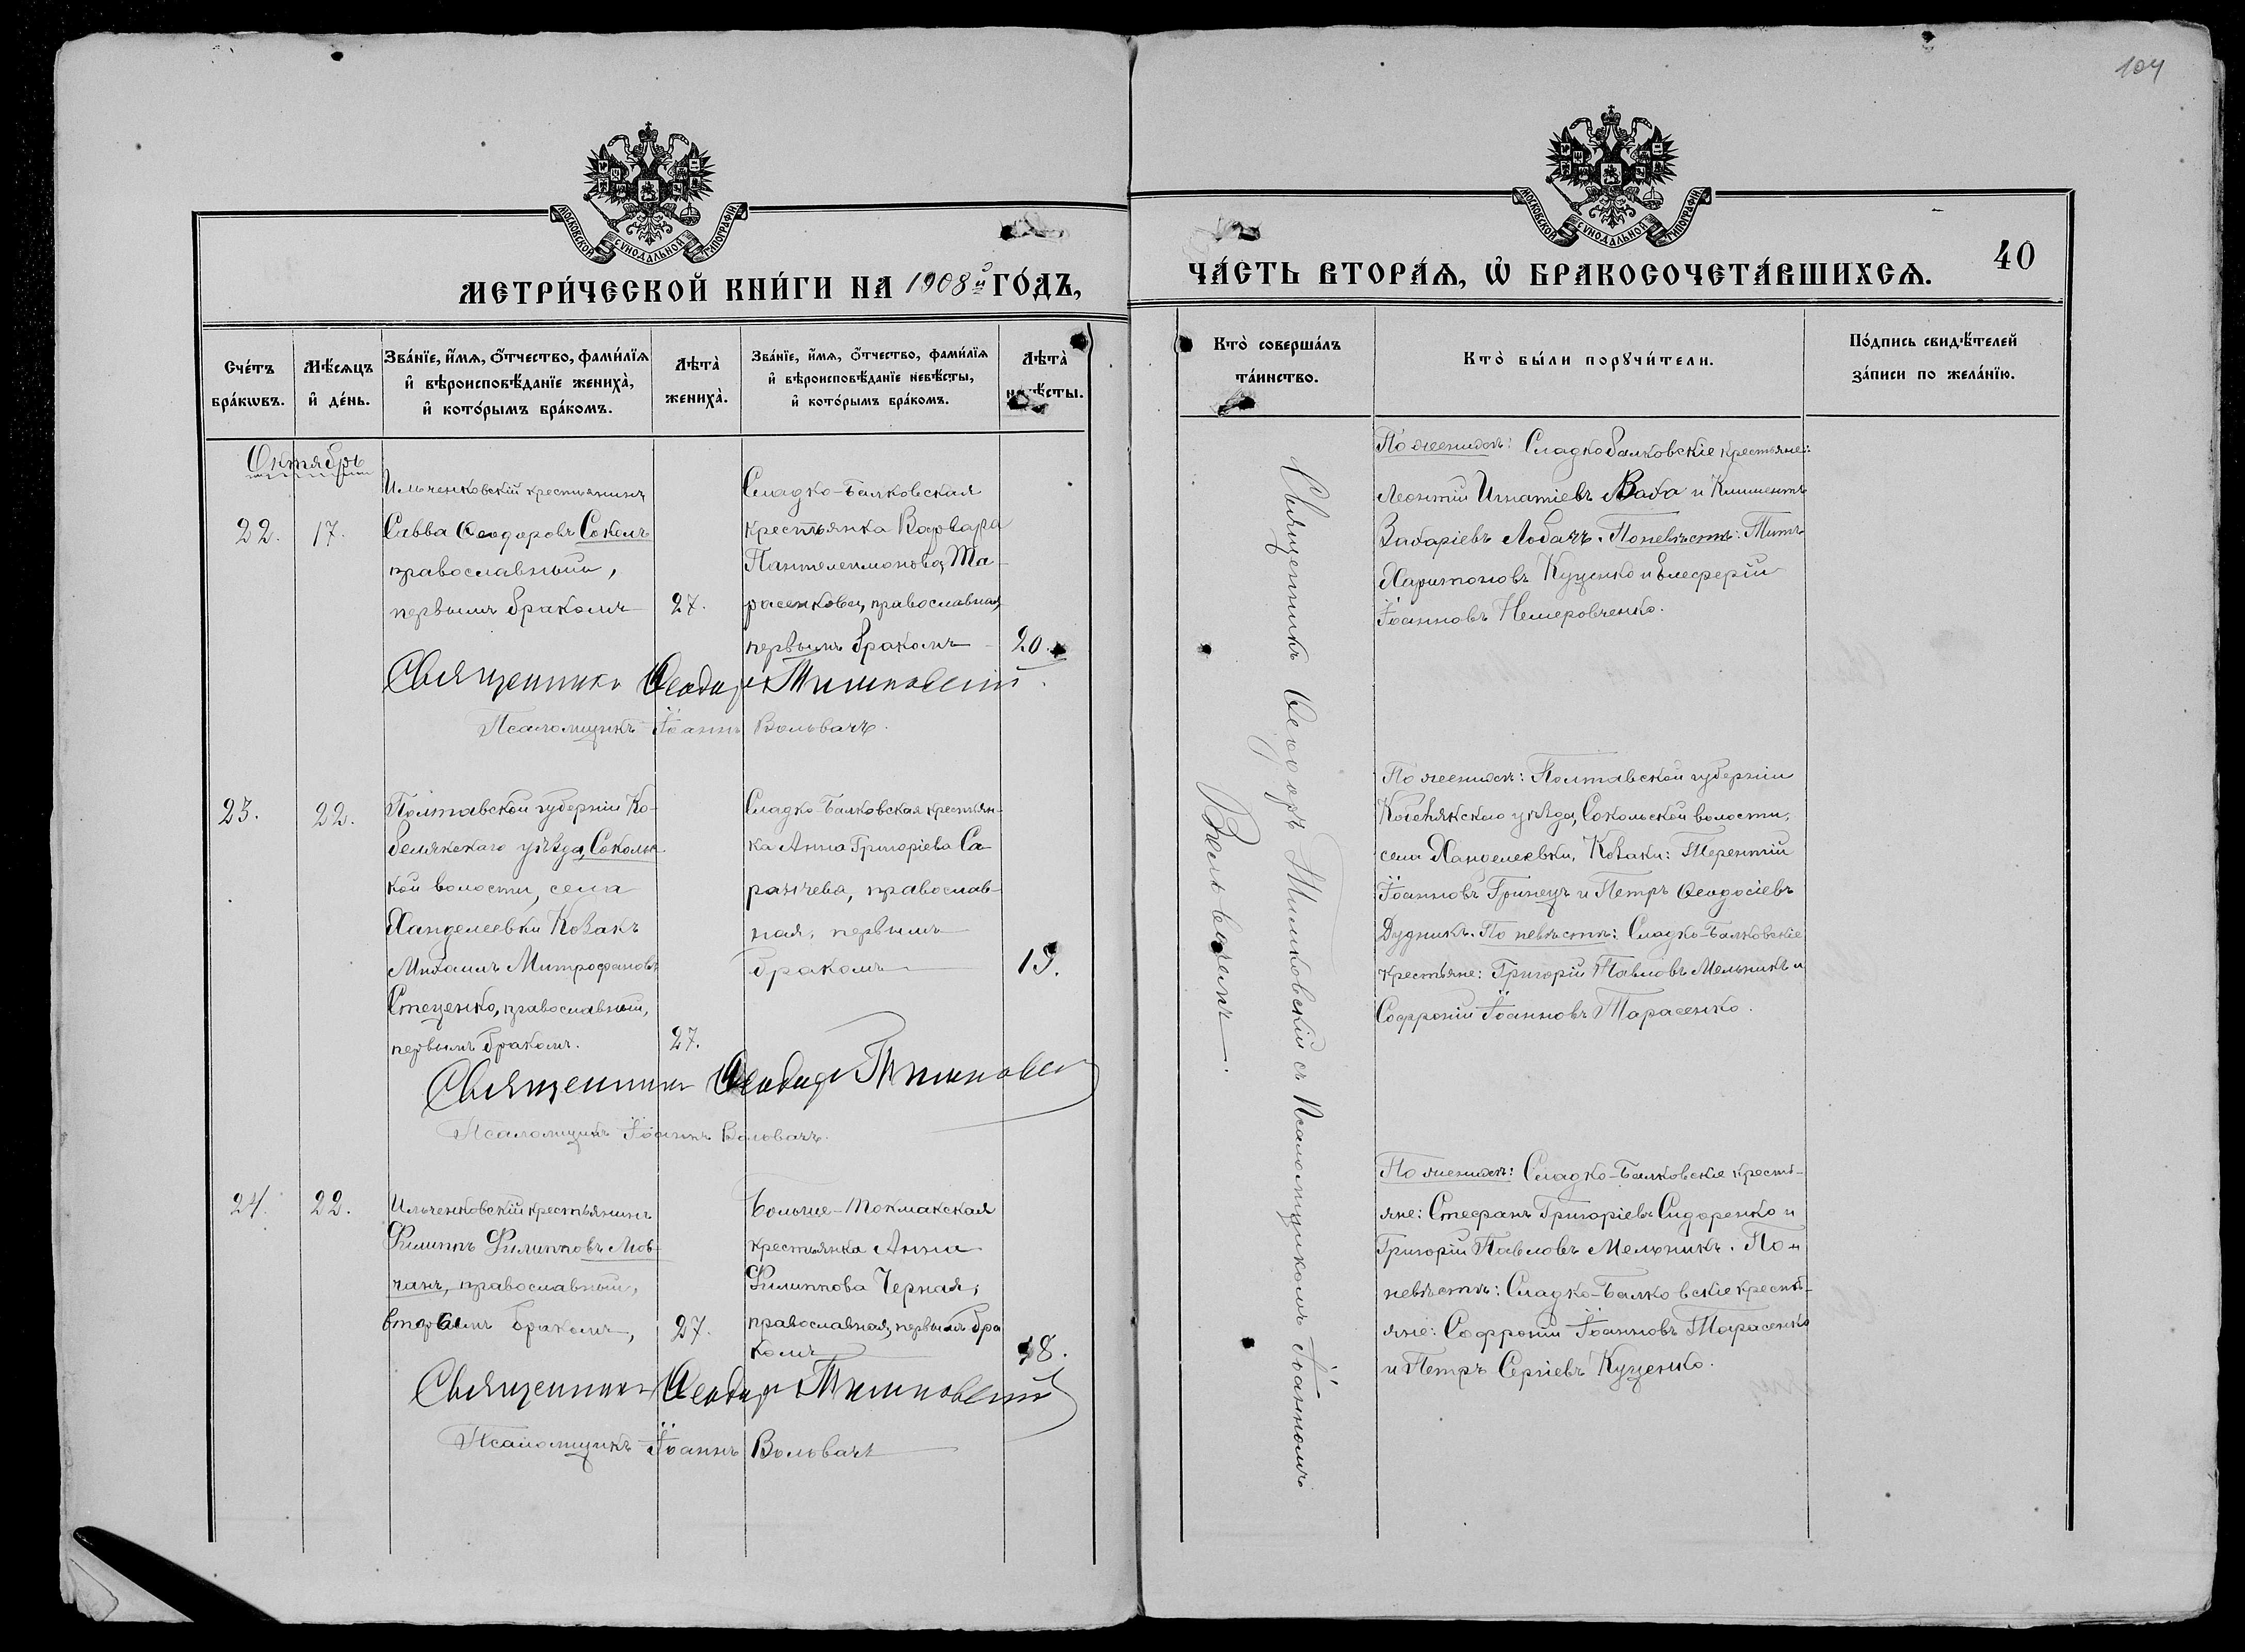 104
МОСКОВСКОЙ СѴНОДАЛЬНОЙ ТИПОГРАФІИ
МЕТРИ́ЧЕСКОЙ КНИ́ГИ НА 1908й ГО́ДЪ,
Сче́тъ бра́кѡвъ.
Мѣ́сяцъ и҆ де́нь.
Зва́нїе, и҆́мѧ, ѻ҆́тчество, фами́лїѧ
и҆ вѣроисповѣ́данїе жениха̀,
и҆ кото́рымъ бра́комъ.
Лѣта̀ жениха̀.
Зва́нїе, и҆́мѧ, ѻ҆́тчество, фами́лїѧ
и҆ вѣроисповѣ́данїе невѣ́сты,
и҆ кото́рымъ бра́комъ.
Лѣта̀ невѣ́сты.
Октябрь
22.
17.
Ильченковскій крестьянинъ
Савва Ѳеодоровъ Соколъ
православный,
первымъ бракомъ
27.
Сладко-Балковская
крестьянка Варвара
Пантелеимонова Та-
расенкова, православная,
первымъ бракомъ
20.
Священникъ Ѳеодоръ Тимиовскій.
Псаломщикъ Іоаннъ Вольвачъ.
23.
22.
Полтавской губерніи Ко-
белякскаго уѣзда, Соколь-
кой волости, села
Ханделеевки Козакъ
Михаилъ Митрофановъ
Стеценко, православный,
первымъ бракомъ.
27.
Сладко-Балковская крестьян-
ка Анна Григоріева Са-
ранчева, православ-
ная, первымъ
бракомъ
19.
Священникъ Ѳеодоръ
Псаломщикъ Іоаннъ Вольвачъ.
24.
22.
Ильченковскій крестьянинъ
Филиппъ Филипповъ Мов-
чанъ, православный,
вторымъ бракомъ,
27.
Больше-Токмакская
крестьянка Анна
Филиппова Черная,
православная, первымъ бра
комъ
18.
Священникъ Ѳеодоръ
Псаломщикъ Іоаннъ Вольвачъ
МОСКОВСКОЙ СѴНОДАЛЬНОЙ ТИПОГРАФІИ
ЧА́СТЬ ВТОРА́Ѧ, Ѡ҆ БРАКОСОЧЕТА́ВШИХСѦ.
40
Кто̀ соверша́лъ
та́инство.
Кто̀ бы́ли порꙋчи́тели.
По́дпись свидѣ́телей
за́писи по жела́нїю.
Священникъ Ѳеодоръ съ Псаломщикомъ Іоанномъ
Вольвачемъ.
По женихѣ: Сладкобалковскіе крестьяне:
Леонтій Игнатіевъ и Климентъ
Захаріевъ Лобачъ. По невѣстѣ: Титъ
Харитоновъ Куценко и Елеферій
Іоанновъ Немеровченко.
По женихѣ: Полтавской губерніи
Кобелякскаго уѣзда, Сокольской волости,
села Ханделеевки, Козаки: Терентій
Іоанновъ Гринецъ и Петръ Ѳеодосіевъ
Дудникъ. По невѣстѣ: Сладко-Балковскіе
крестьяне: Григорій Павловъ Мельникъ и
Софроній Іоанновъ Тарасенко.
По женихѣ: Сладко-Балковскіе кресть-
яне: Стефанъ Григоріевъ Сидоренко и
Григорій Павловъ Мельникъ. По
невѣстѣ: Сладко-Балковскіе кресть-
яне: Софроній Іоанновъ Тарасенко
и Петръ Сергіевъ Куценко.